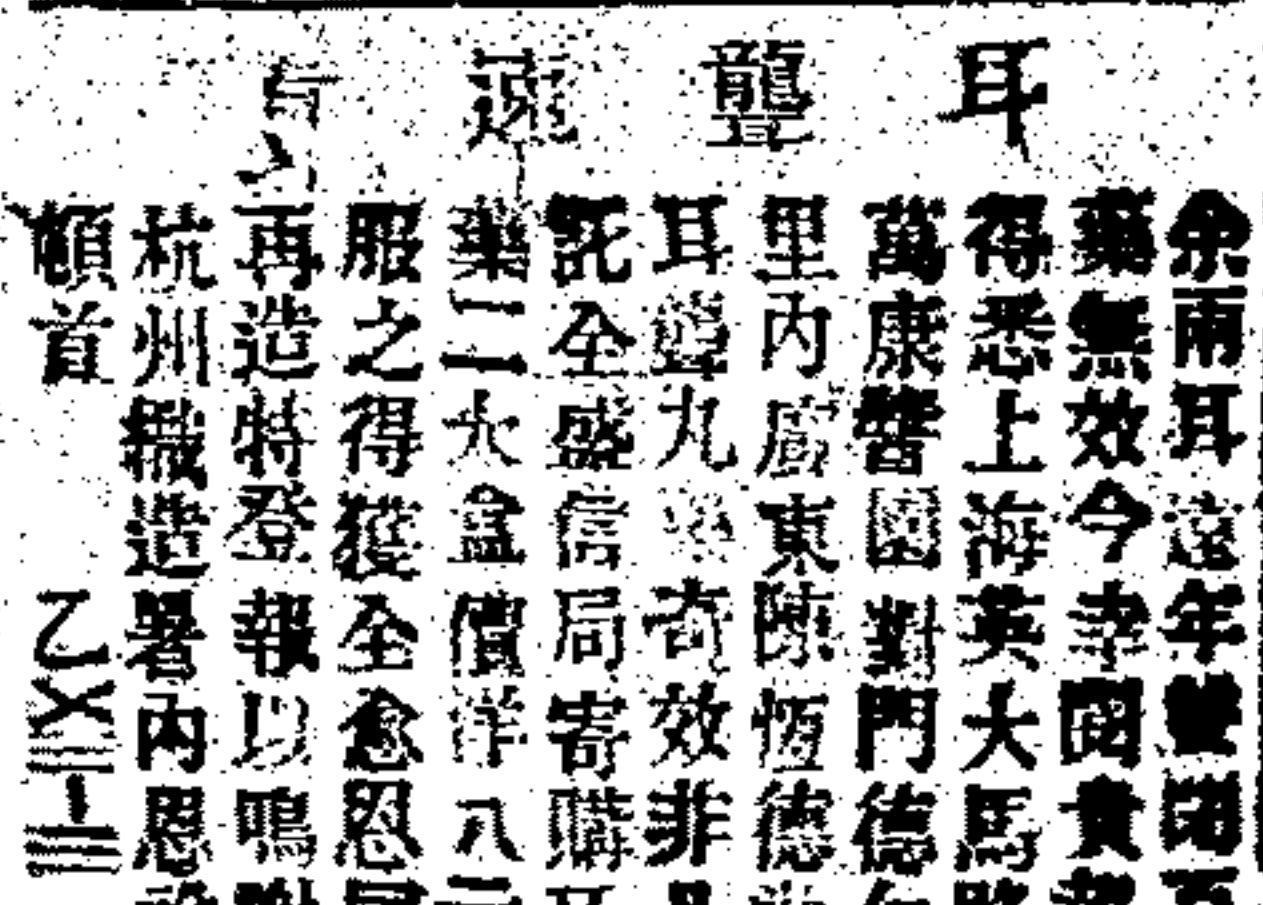 耳聾速
余兩耳遠年雙閉百
藥無效今幸閱貴報
得悉上海英大馬路
萬康醬園對門德仁
里內廣東陳恆德堂
耳聾丸奇效非凡
託全盛信局寄購耳
藥二大盒價洋八
服之得獲全愈恩同
再造特登報以鳴謝
杭州織造署內恩
頓首